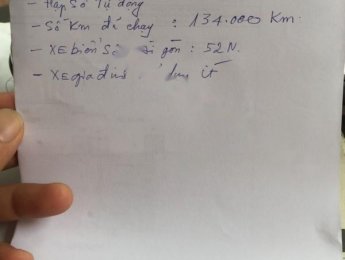 - Hộp Số Tự động
- Số Km đã chạy : 134.000 Km.
- XE biển Số Sài gòn : 52N.
- XE gia đình ít